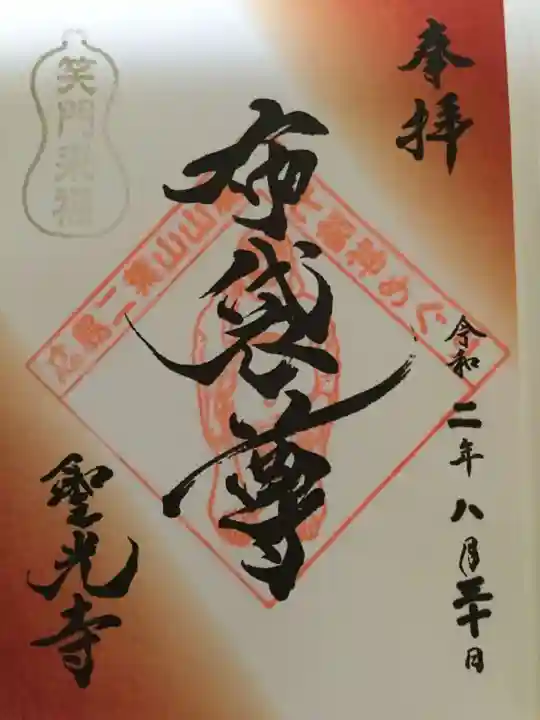 奉拝
令和二年八月三十日
布袋尊
聖光寺
笑門来福
広島二葉山山麓七福神めぐり